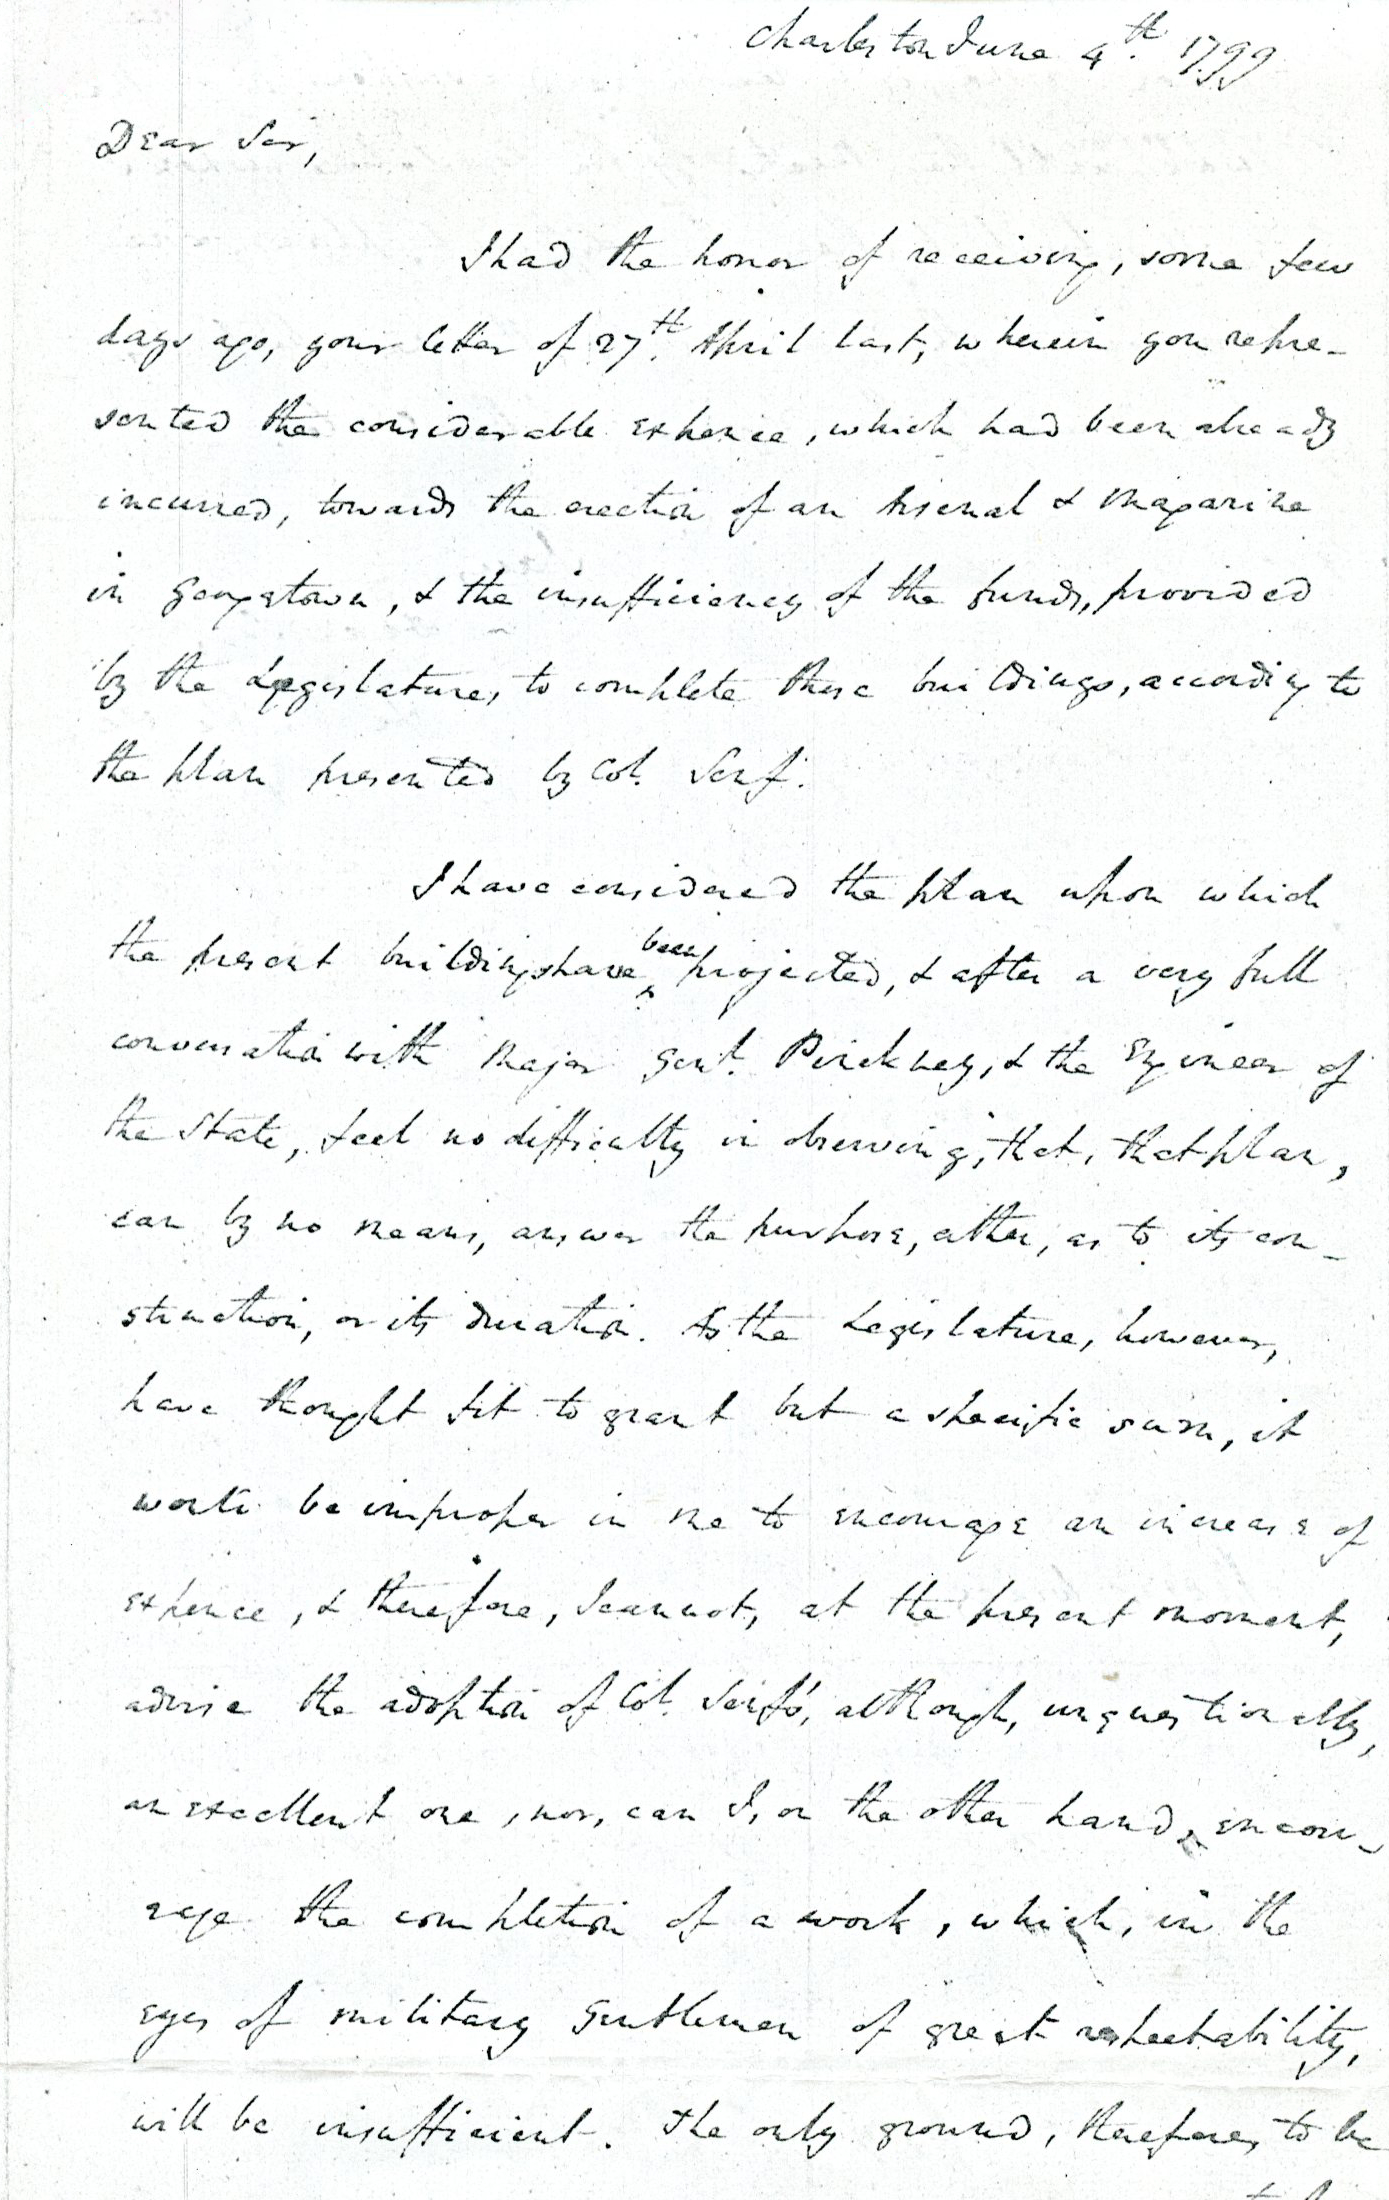 Charleston June 4th. 1799
Dear Sir,
I had the honor of receiving, some few
days ago, your letter of 27th. April last, wherein you repre-
sented the considerable expence, which had been already
incurred, towards the erection of an Arsenal & Magazine
in Georgetown, & the insufficiency of the funds, provided
by the Legislature, to complete these buildings, according to
the plan presented by Col. Senf.
I have considered the plan upon which
the present buildings have been projected, & after a very full
conversation with Major Genl. Pinckney, & the Engineer of
the State, feel no difficulty in observing, that, that plan,
can by no means, answer the purpose, either, as to its con-
struction, or its duration. As the Legislature, however,
have thought fit to grant but a specific sum, it
would be improper in me to encourage an increase of
expence, & therefore, I cannot, at the present moment,
advise the adoption of Col. Senf's, although, unquestionably,
an excellent one, nor, can I, on the other hand, encou-
rage the completion of a work, which, in the
eyes of military Gentlemen of great respectability,
will be insufficient. The only ground, therefore, to be